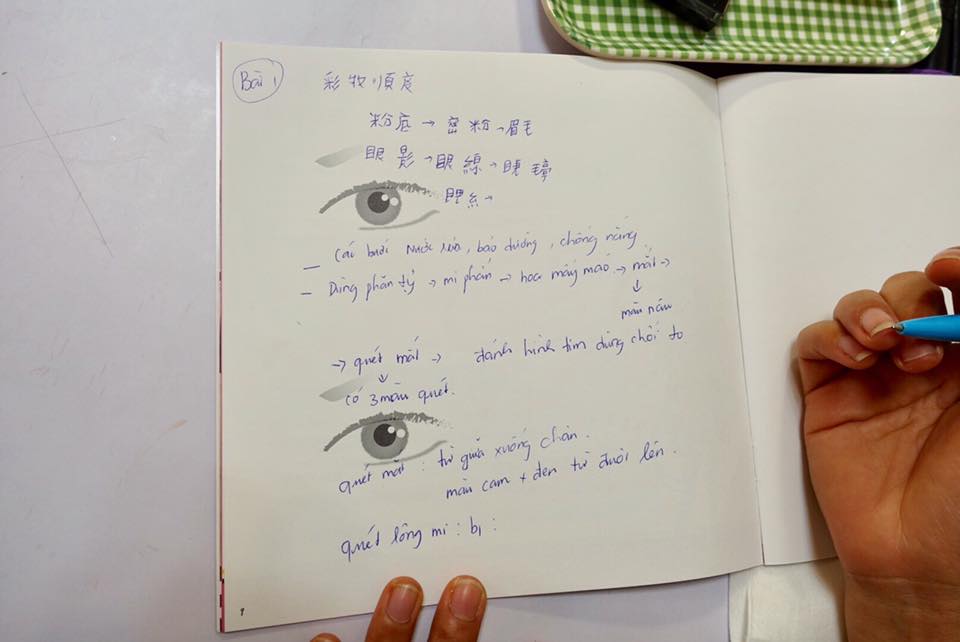 Bài 1
彩妝順度
粉底 → 密粉 → 眉毛
眼影 → 眼線 → 睫
→
– Các bước nước rửa, bảo dưỡng, chống nắng
– Dùng phấn → mi phấn → hoa mày → mắt →
↓
màu nâu
→ quét mắt → đánh hình tim dùng chổi to
↓
có 3 màu quét.
quét mắt : từ giữa xuống chân.
màu cam + đen từ đuôi lên.
quét lông mi : b1 :